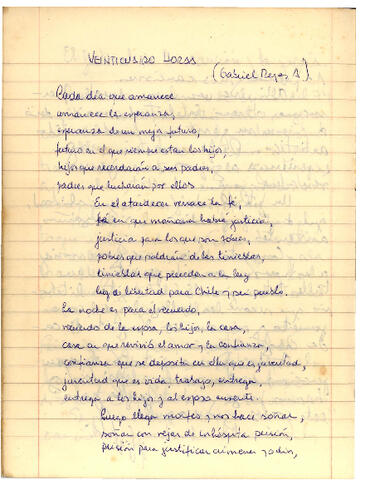 VEINTICUATRO HORAS
(Gabriel Reyes A.)
Cada día que amanece
amanece la esperanza,
esperanza de un mejor futuro,
futuro en el que siempre estan los hijos,
hijos que recordarán a sus padres,
padres que lucharon por ellos
En el atardecer renace la fé,
fé en que mañana habrá justicia,
justicia para los que son pobres,
pobres que saldrán de las tinieblas,
tinieblas que preceden a la luz
luz de libertad para Chile y su pueblo.
La noche es para el recuerdo,
recuerdo de la esposa, los hijos, la casa,
casa en que revivió el amor y la confianza,
confianza que se deposita en ella que es juventud,
juventud que es vida, trabajo, entrega,
entrega a los hijos y al esposo ausente.
Luego llega morfeo y nos hace soñar,
soñar con rejas de inhóspita prisión,
prisión para justificar crímenes y odio,